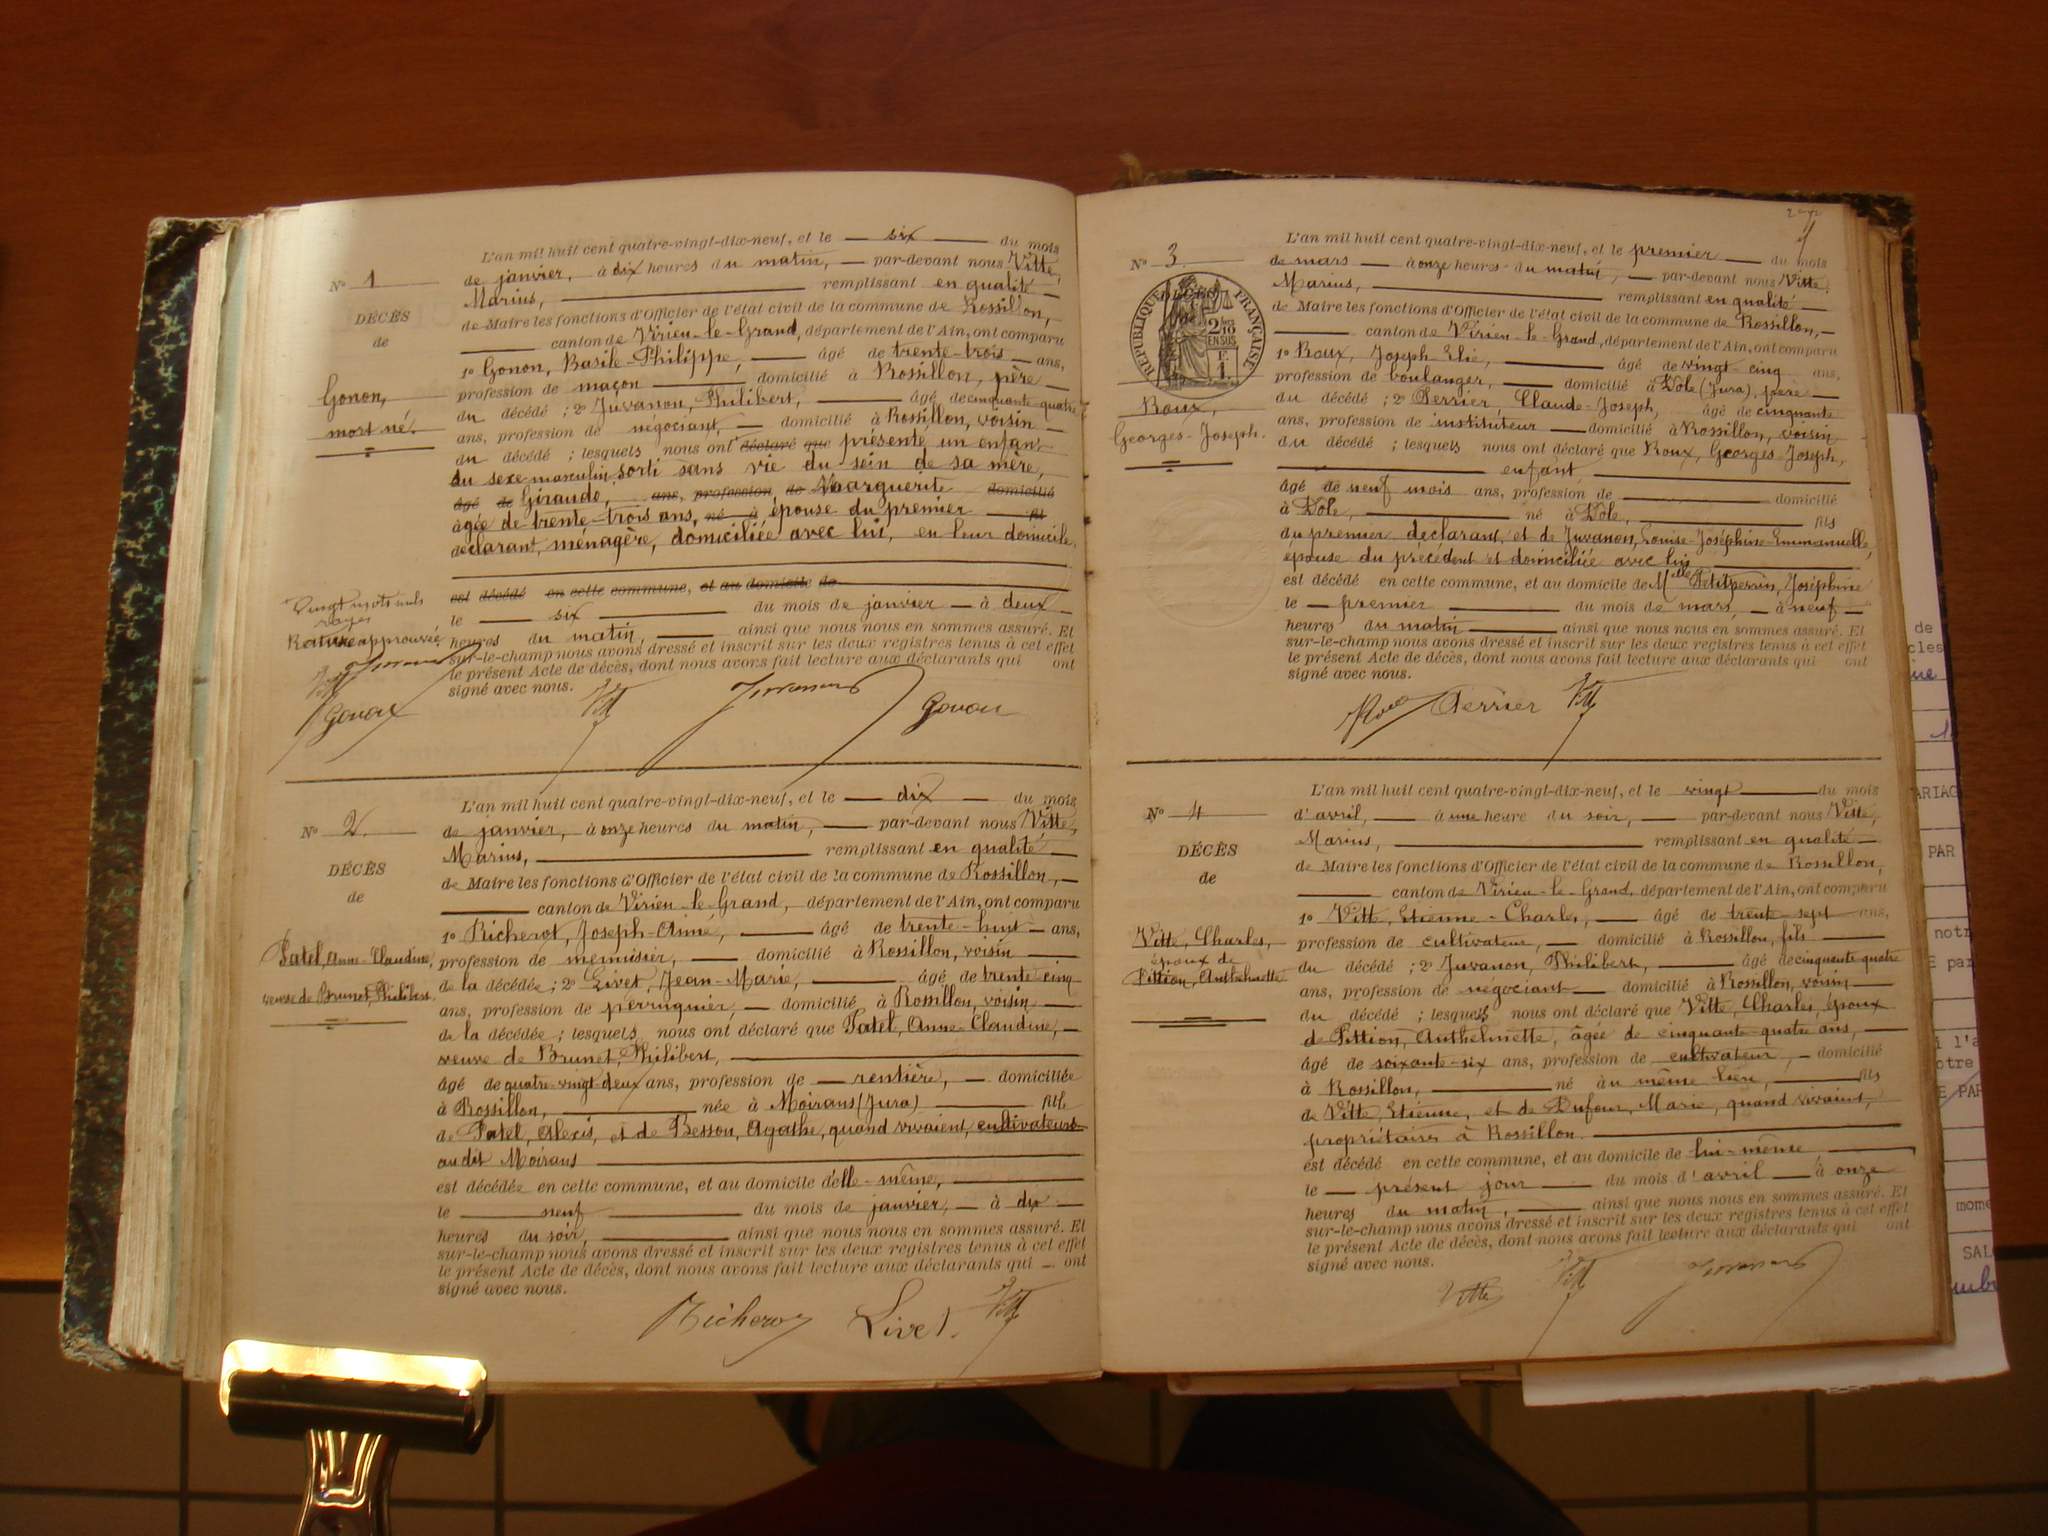 L'an mil huit cent quatre-vingt-dix-neuf, et le six du mois
de janvier, à dix heures du matin, par-devant nous Vitte,
Marius, remplissant en qualité
de Maire les fonctions d'Officier de l'état civil de la commune de Rossillon,
canton de Virieu-le-Grand, département de l'Ain, ont comparu
1o Gonon, Basile-Philippe, âgé de trente-trois ans,
profession de maçon domicilié à Rossillon, père
du décédé ; 2o Juvanon, Philibert, âgé de cinquante quatre
ans, profession de négociant, domicilié à Rossillon, voisin
du décédé ; lesquels nous ont déclaré que présenté un enfant
du sexe masculin, sorti sans vie du sein de sa mère,
âgé de Giraude, ans, profession de Marguerite domicilié
âgée de trente-trois ans, né à épouse du premier fil
déclarant, ménagère, domiciliée avec lui, en leur domicile,
est décédé en cette commune, et au domicile de
le six du mois de janvier à deux
heures du matin, ainsi que nous nous en sommes assuré. Et
sur-le-champ nous avons dressé et inscrit sur les deux registres tenus à cet effet
le présent Acte de décès, dont nous avons fait lecture aux déclarants qui ont
signé avec nous.
No 1
DÉCÈS
de
Gonon,
mort né.
Vingt mots nuls
rayés
Rature approuvée
Gonon
Vitte
Juvanon
Gonon
No 2
DÉCÈS
de
Patel, Anne-Claudine,
veuve de Brunet, Philibert
L'an mil huit cent quatre-vingt-dix-neuf, et le dix du mois
de janvier, à onze heures du matin, par-devant nous Vitte,
Marius, remplissant en qualité
de Maire les fonctions d'Officier de l'état civil de la commune de Rossillon,
canton de Virieu-le-Grand, département de l'Ain, ont comparu
1o Richerot, Joseph-Aimé, âgé de trente-huit ans,
profession de menuisier, domicilié à Rossillon, voisin
de la décédée ; 2o Livet, Jean-Marie, âgé de trente cinq
ans, profession de perruquier, domicilié à Rossillon, voisin
de la décédée ; lesquels nous ont déclaré que Patel, Anne-Claudine,
veuve de Brunet, Philibert,
âgé de quatre-vingt-deux ans, profession de rentière, domiciliée
à Rossillon, née à Moirans (Jura) fille
de Patel, Alexis, et de Besson, Agathe, quand vivaient, cultivateurs
audit Moirans
est décédée en cette commune, et au domicile d'elle-même,
le neuf du mois de janvier, à dix
heures du soir, ainsi que nous nous en sommes assuré. Et
sur-le-champ nous avons dressé et inscrit sur les deux registres tenus à cet effet
le présent Acte de décès, dont nous avons fait lecture aux déclarants qui ont
signé avec nous.
Richerot Livet. Vitte
No 3
DÉCÈS
RÉPUBLIQUE FRANÇAISE
2/10
EN SUS
F.
1.
Roux,
Georges-Joseph.
L'an mil huit cent quatre-vingt-dix-neuf, et le premier du mois
de mars à onze heures du matin, par-devant nous Vitte
Marius, remplissant en qualité
de Maire les fonctions d'Officier de l'état civil de la commune de Rossillon,
canton de Virieu-le-Grand, département de l'Ain, ont comparu
1o Roux, Joseph-Elie, âgé de vingt cinq ans,
profession de boulanger, domicilié à Dole (Jura), père
du décédé ; 2o Perrier, Claude-Joseph, âgé de cinquante
ans, profession de instituteur domicilié à Rossillon, voisin
du décédé ; lesquels nous ont déclaré que Roux, Georges-Joseph,
enfant,
âgé de neuf mois ans, profession de domicilié
à Dole, né à Dole, fils
du premier déclarant, et de Juvanon, Louise-Joséphine-Emmanuelle,
épouse du précédent et domiciliée avec lui
est décédé en cette commune, et au domicile de Mlle Petitperrin, Joséphine
le premier du mois de mars, à neuf
heures du matin ainsi que nous nous en sommes assuré. Et
sur-le-champ nous avons dressé et inscrit sur les deux registres tenus à cet effet
le présent Acte de décès, dont nous avons fait lecture aux déclarants qui ont
signé avec nous.
Roux Perrier Vitte
No 4
DÉCÈS
de
Vitte, Charles,
époux de
Pittion, Anthelmette
L'an mil huit cent quatre-vingt-dix-neuf, et le vingt du mois
d'avril, à une heure du soir, par-devant nous Vitte,
Marius, remplissant en qualité
de Maire les fonctions d'Officier de l'état civil de la commune de Rossillon,
canton de Virieu-le-Grand, département de l'Ain, ont comparu
1o Vitte, Etienne-Charles, âgé de trente-sept ans,
profession de cultivateur, domicilié à Rossillon, fils
du décédé ; 2o Juvanon, Philibert, âgé de cinquante-quatre
ans, profession de négociant domicilié à Rossillon, voisin
du décédé ; lesquels nous ont déclaré que Vitte, Charles, époux
de Pittion, Anthelmette, âgée de cinquante-quatre ans,
âgé de soixante-six ans, profession de cultivateur, domicilié
à Rossillon, né au même lieu, fils
de Vitte, Etienne, et de Dufour, Marie, quand vivaient,
propriétaires à Rossillon.
est décédé en cette commune, et au domicile de lui-même
le présent jour du mois d'avril à onze
heures du matin, ainsi que nous nous en sommes assuré. Et
sur-le-champ nous avons dressé et inscrit sur les deux registres tenus à cet effet
le présent Acte de décès, dont nous avons fait lecture aux déclarants qui ont
signé avec nous.
Vitte Vitte Juvanon